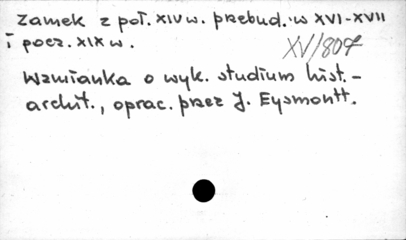 Zamek z poł. XIV w. przebud. w XVI-XVII
i pocz. XIX w.
XV/807
Wzmianka o wyk. studium hist.-
archit., oprac. przez J. Eysmontt.